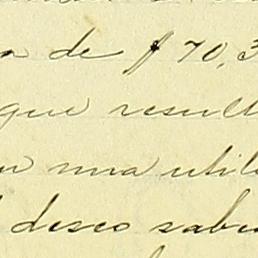 a de $70,3
que result
una utili
deseo saber